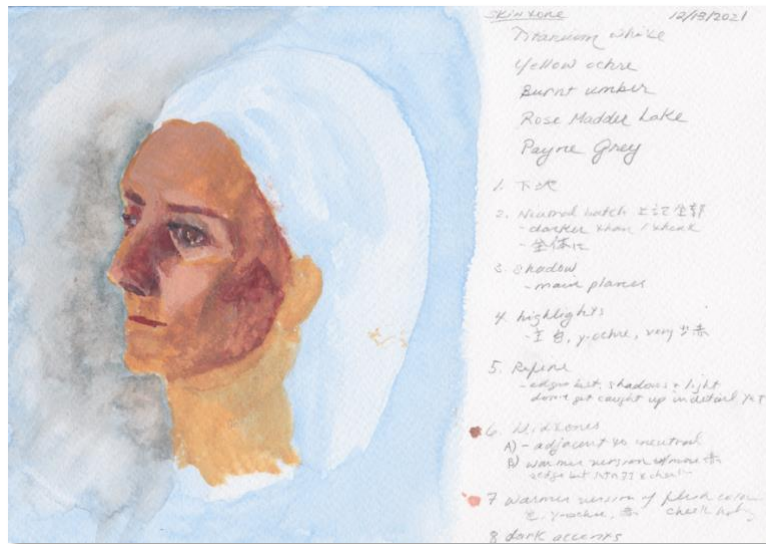 SKIN TONE 12/13/2021
Titanium White
Yellow ochre
Burnt umber
Rose Madder Lake
Payne Grey
1. 下地
2. Neutral batch 上記全部
- darker than I think
- 全体に
3. Shadow
- main planes
4. highlights
- 白, y. ochre, very 少 赤
5. Refine
- edges bet. shadows + light
don't get caught up in detail yet
6. Midtones
A) - adjacent to neutral
B) warmer version
7 warmer version of flesh color
y. ochre, 赤
8 dark accents